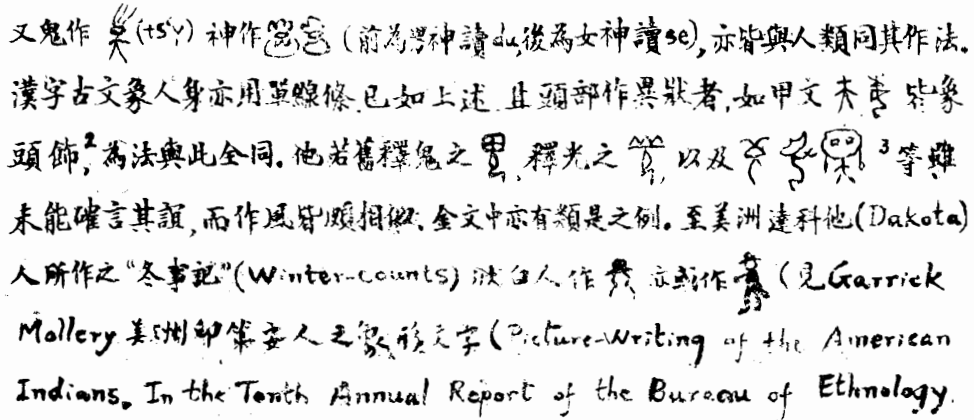 又鬼作 (tsʼy) 神作 (前為男神讀du,後為女神讀se),亦皆與人類同其作法.
漢字古文象人身亦用單線條,已如上述,且頭部作異狀者,如甲文 皆象
頭飾,2 為法與此全同.他若舊釋鬼之 ,釋光之 ,以及 3等雖
未能確言其誼,而作風皆頗相似.金文中亦有類是之例.至美洲達科他(Dakota)
人所作之“冬事記”(Winter-counts) 白人作 亦 作 (見Garrick
Mallery美洲印第安人之象形文字(Picture-Writing of the American
Indians. In the Tenth Annual Report of the Bureau of Ethnology.